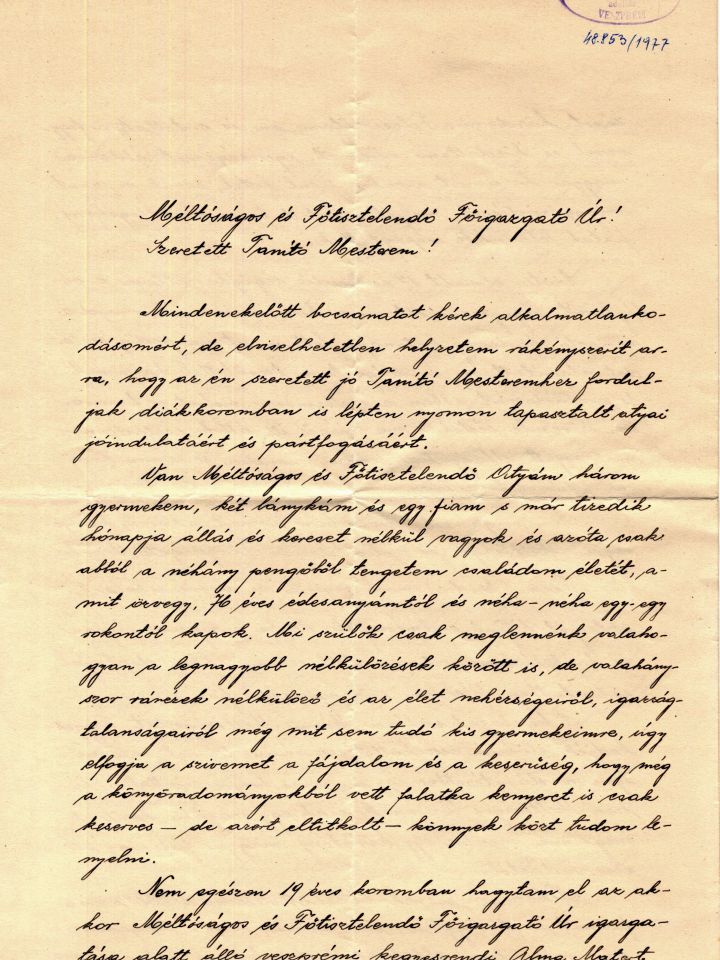 VESZPRÉM
48.853/1977
Méltóságos és Főtisztelendő Főigazgató Úr!
Szeretett Tanító Mesterem!
Mindenekelőtt bocsánatot kérek alkalmatlanko-
dásomért, de elviselhetetlen helyzetem rákényszerit ar-
ra, hogy az én szeretett jó Tanító Mesteremhez fordul-
jak diákkoromban is lépten nyomon tapasztalt atyai
jóindulatáért és pártfogásáért.
Van Méltóságos és Főtisztelendő Atyám három
gyermekem, két lánykám és egy fiam s már tizedik
hónapja állás és kereset nélkül vagyok és azóta csak
abból a néhány pengőből tengetem családom életét, a-
mit özvegy, 76 éves édesanyámtól és néha-néha egy-egy
rokontól kapok. Mi szülők csak meglennénk valaho-
gyan a legnagyobb nélkülözések között is, de valahány-
szor ránézek nélkülöző és az élet nehézségeiről, igazság-
talanságairól még mit sem tudó kis gyermekeimre, úgy
elfogja a szivemet a fájdalom és a keserűség, hogy még
a könyöradományokból vett falatka kenyeret is csak
keserves — de azért eltitkolt — könnyek közt tudom le-
nyelni.
Nem egészen 19 éves koromban hagytam el az ak-
kor Méltóságos és Főtisztelendő Főigazgató Úr igazga-
tása alatt álló veszprémi kegyesrendi Alma Matert